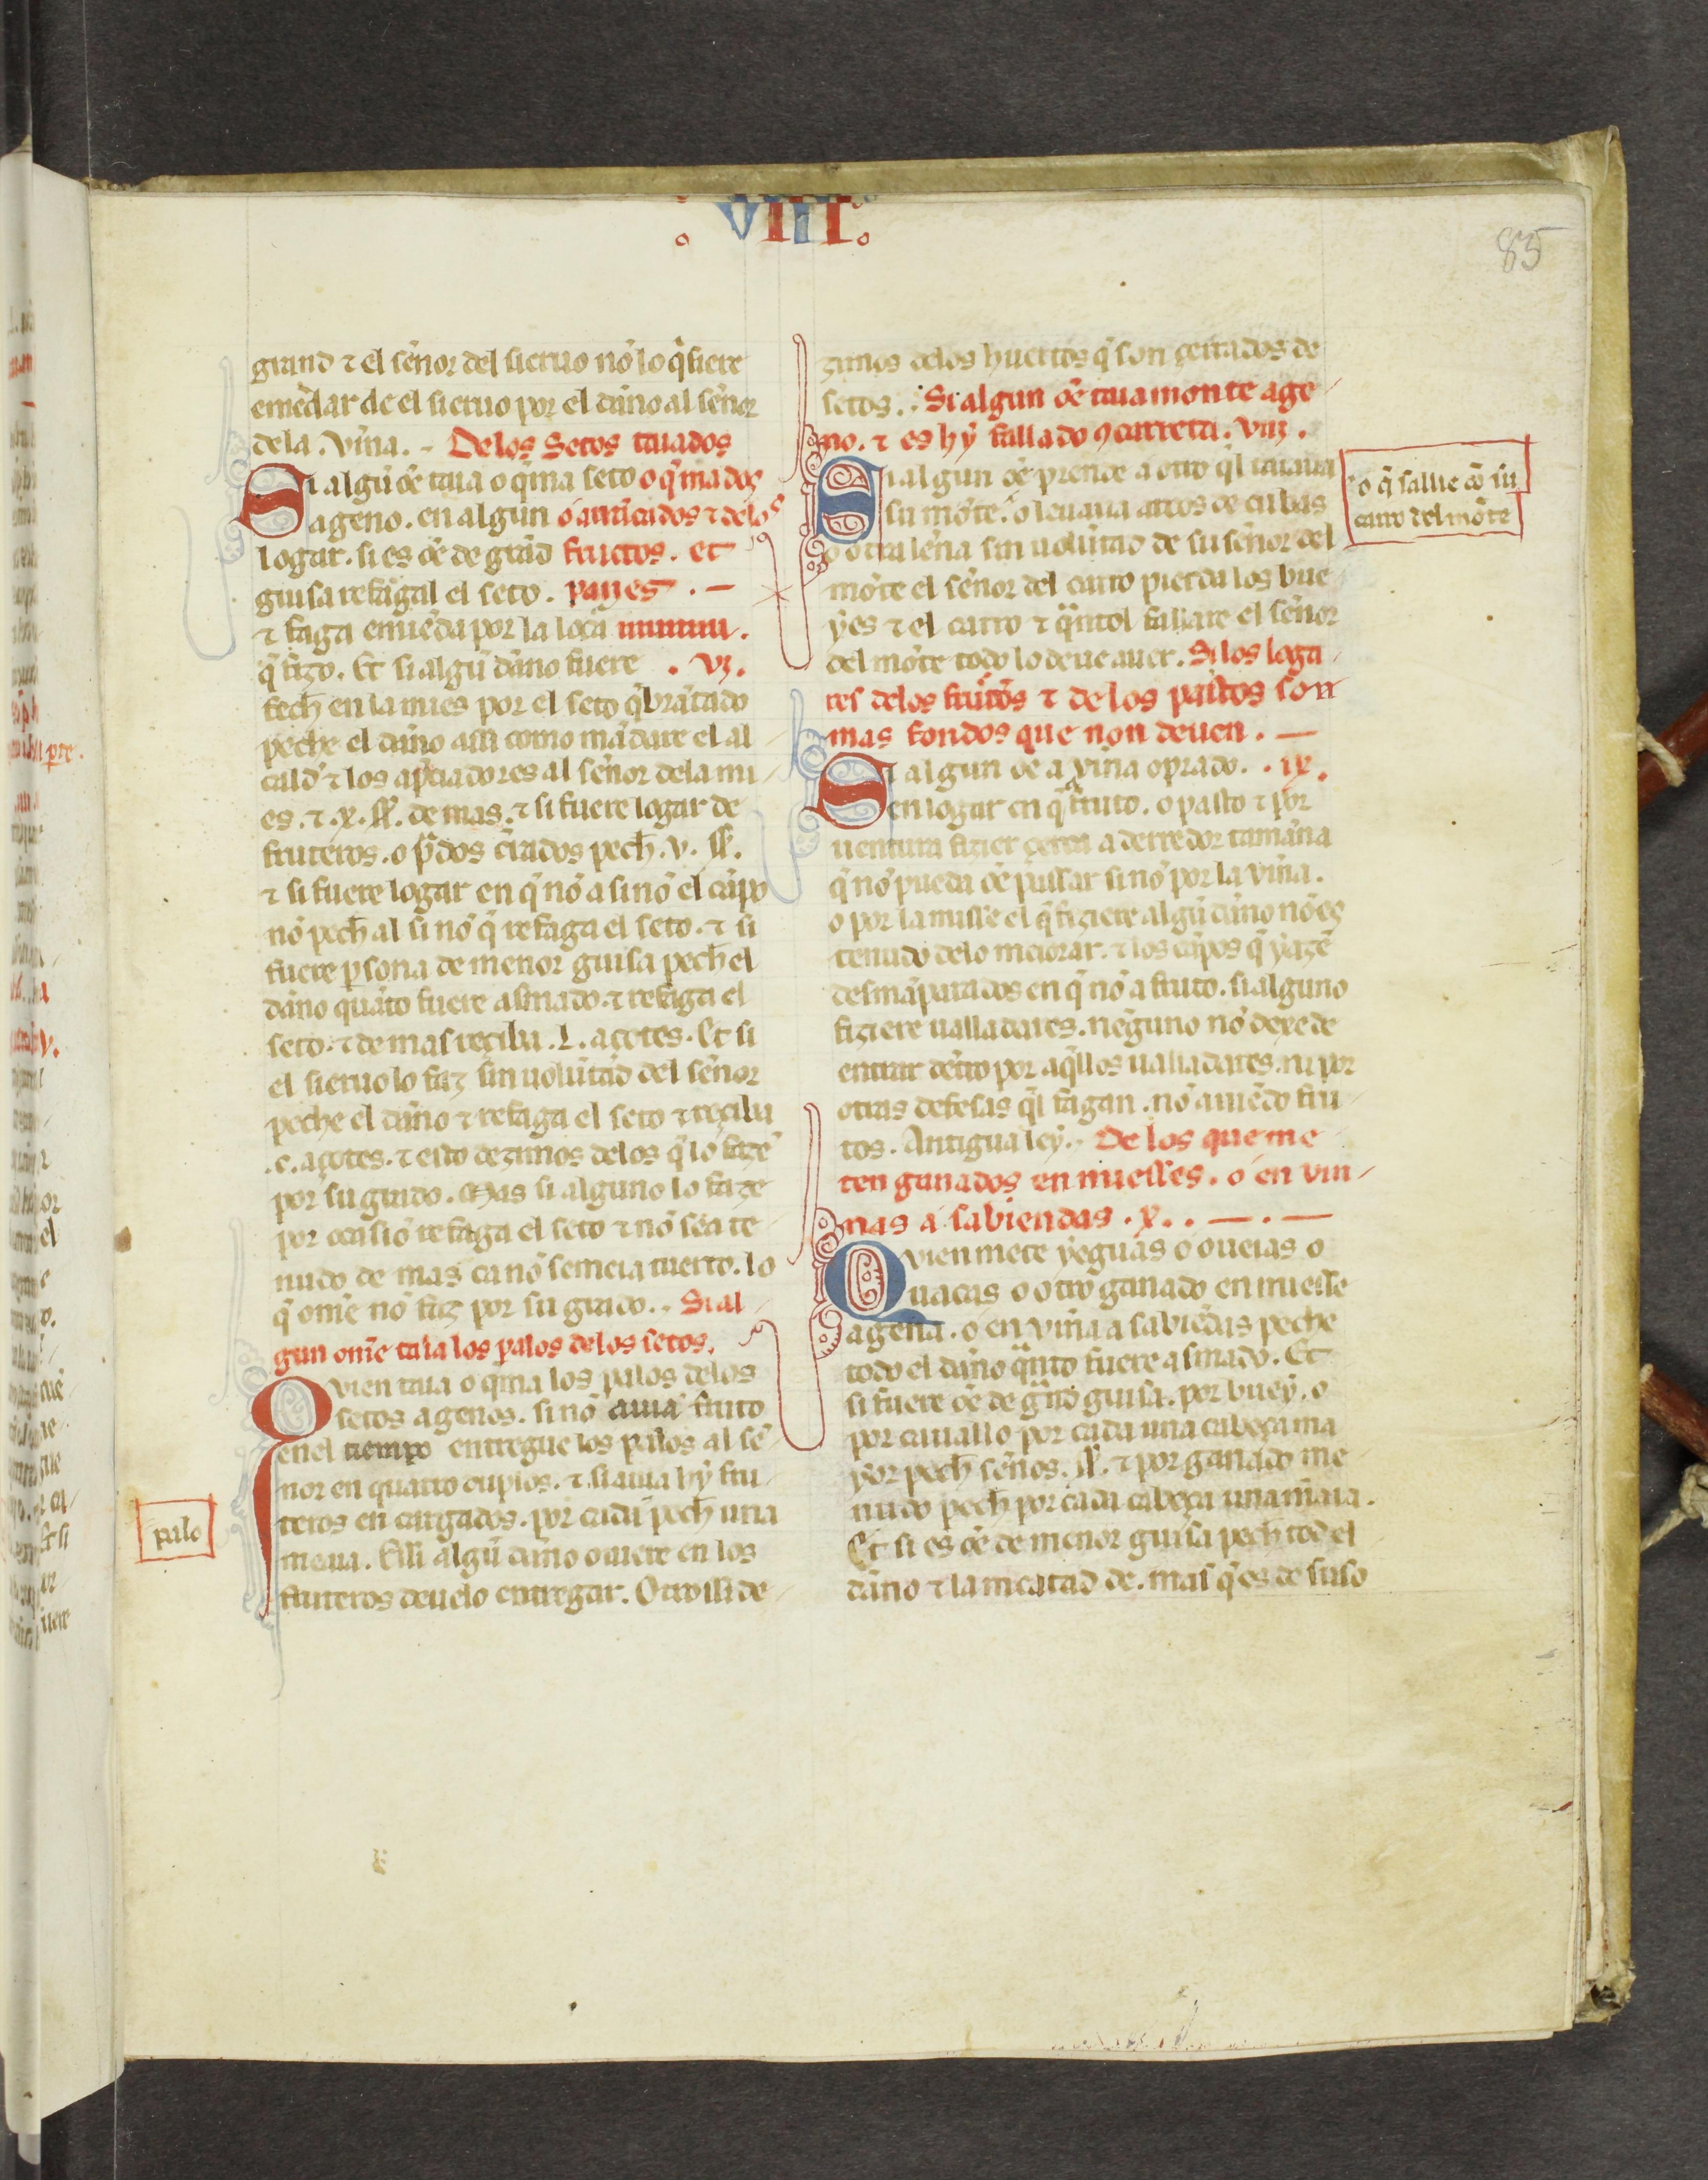 VIII
85
grand ⁊ el señor del sieruo nõ lo q̃siere
emẽdar de el sieruo por el dãno al señor
dela viña. De los Setos taiados
Si algũ oẽ taia o q̃ma seto o q̃mados
ageno. en algun o arrãcados ⁊ delos
logar. si es oẽ de grãd fructos. et
guisa refagal el seto. panes. —
⁊ faga emiẽda por la locã
q̃ fizo. Et si algũ dãno fuere . vi.
fech en la mies por el seto q̃brãtado
peche el dãno assi como mãdare el al
cald ⁊ los apciadores al señor dela mi
es. ⁊ .x. ss. de mas. ⁊ si fuere logar de
fruteros. o p̃dos c̃rados pech. v. ss.
⁊ si fuere logar en q̃ nõ a sinõ el cãpo
nõ pech al si nõ q̃ refaga el seto. ⁊ si
fuere psona de menor guisa pech el
dãno quãto fuere asmado. ⁊ refaga el
seto. ⁊ de mas reçiba .L. açotes. Et si
el sieruo lo faz sin uolũtad del señor
peche el dãno ⁊ refaga el seto ⁊ reçiba
.c. açotes. ⁊ esto dezimos delos q̃ lo fazẽ
por su grado. Mas si alguno lo faze
por ocasiõ refaga el seto ⁊ nõ sea te
nudo de mas ca nõ semeia tuerto. lo
q̃ om̃e nõ faz por su grado. Si al
gun om̃e taia los palos delos setos.
Qvien taia o q̃ma los palos delos
setos agenos. si nõ auia fruto
enel tiempo entregue los palos al se
ñor en quatro duplos. ⁊ si auia hy fru
teros en cargados. por cada pech una
meaia. E si algũ dãno ouiere en los
fruteros deuelo entregar. Otrossi de
palo
zimos delos huertos q̃ son çerrados de
setos. Si algun oẽ taia monte age
no. ⁊ es hy fallado 9 carreta. viii.
Si algun oẽ prende a otro q̃l taiaua
su mõte. o leuaua arcos de cubas
o otra leña sin uolũtad de su señor del
mõte el señor del carro pierda los bue
yes ⁊ el carro ⁊ q̃ntol fallare el señor
del mõte todo lo deue auer. Si los loga
res delos frutos ⁊ de los pastos son
mas fondos que non deuen. —
Si algun oẽ a viña o prado. . ix.
en logar en q̃ a fruto. o pasto ⁊ por
uentura fizier çerca a derredor tamãna
q̃ nõ pueda oẽ passar sinõ por la viña.
o por la miesse el q̃ fiziere algũ dãno nõ es
tenudo delo meiorar. ⁊ los cãpos q̃ yazẽ
desmãparados en q̃ nõ a fruto. si alguno
fiziere ualladares. neguno nõ dexe de
entrar dẽtro por aq̃llos ualladares. ni por
otras defesas q̃l fagan. nõ auiẽdo fru
tos. Antigua ley. De los que me
ten ganados en miesses. o en vin
nas a sabiendas .x. — . —
Qvien mete yeguas o oueias o
uacas o otro ganado en miesse
agena. o en viña a sabiẽdas peche
todo el dãno q̃nto fuere asmado. Et
si fuere oẽ de g̃nd guisa. por buey. o
por cauallo por cada una cabeça ma
yor pech seños. ss. ⁊ por ganado me
nudo pech por cada cabeça una m̃aia.
Et si es oẽ de menor guisa pech tod el
dãno ⁊ la meatad de. mas q̃ es de suso
o q̃ sallie cõ su
carro del mõte